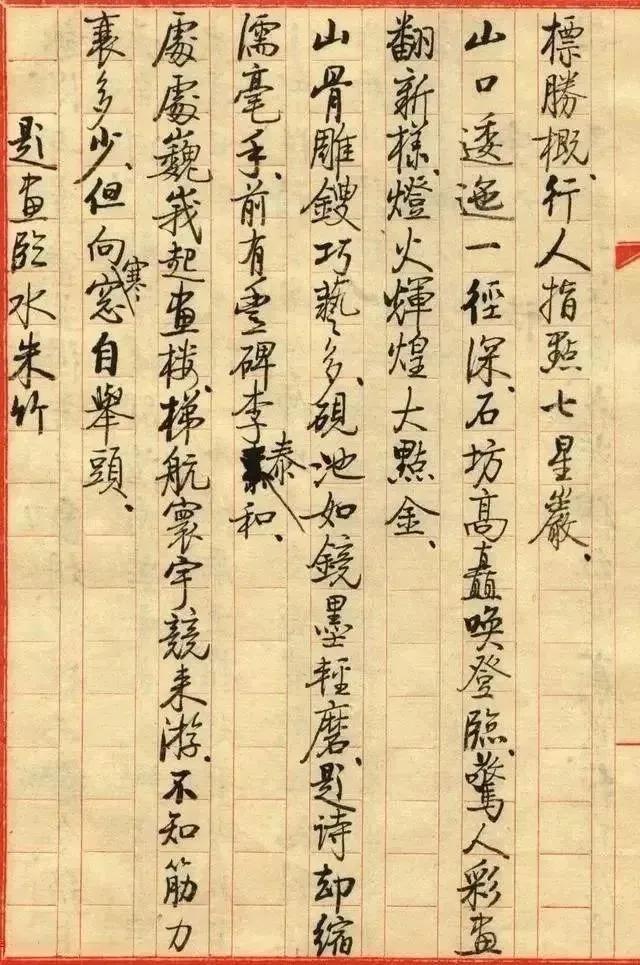 標勝概、行人指點七星巖、
山口逶迤一徑深、石坊高矗喚登臨、驚人彩畫
翻新樣、燈火輝煌大點金、
山骨雕鎪巧藝多、硯池如鏡墨輕磨、題詩却縮
濡毫手、前有豐碑李泰和、
處處巍峩起畫楼、梯航寰宇競来游、不知筋力
衰多少、但向寒窓自舉頭、
題畫臨水朱竹